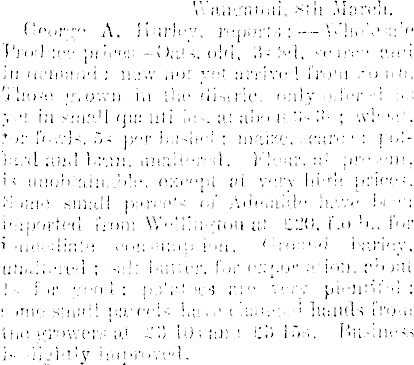 Wanganui, 8th March.
George A. Hurley, reports:—Wholesale
Produce prices—Oats, old, scarce and
in demand; new not yet arrived from
Those grown in the district only offered as
yet in small quantities, at about wheat,
for fowls, 5s per bushel; maize, scarce; pol-
lard and bran, unaltered. Flour, at present,
is unobtainable, except at very high prices.
Some small parcels of Adelaide have been
imported from Wellington at £20, f.o.b., for
immediate consumption. Ground barley,
unaltered; salt butter, for exportation, about
for good; potatoes are very plentiful;
some small parcels have changed hands from
the growers at £3 10s and £3 15s. Business
is slightly improved.